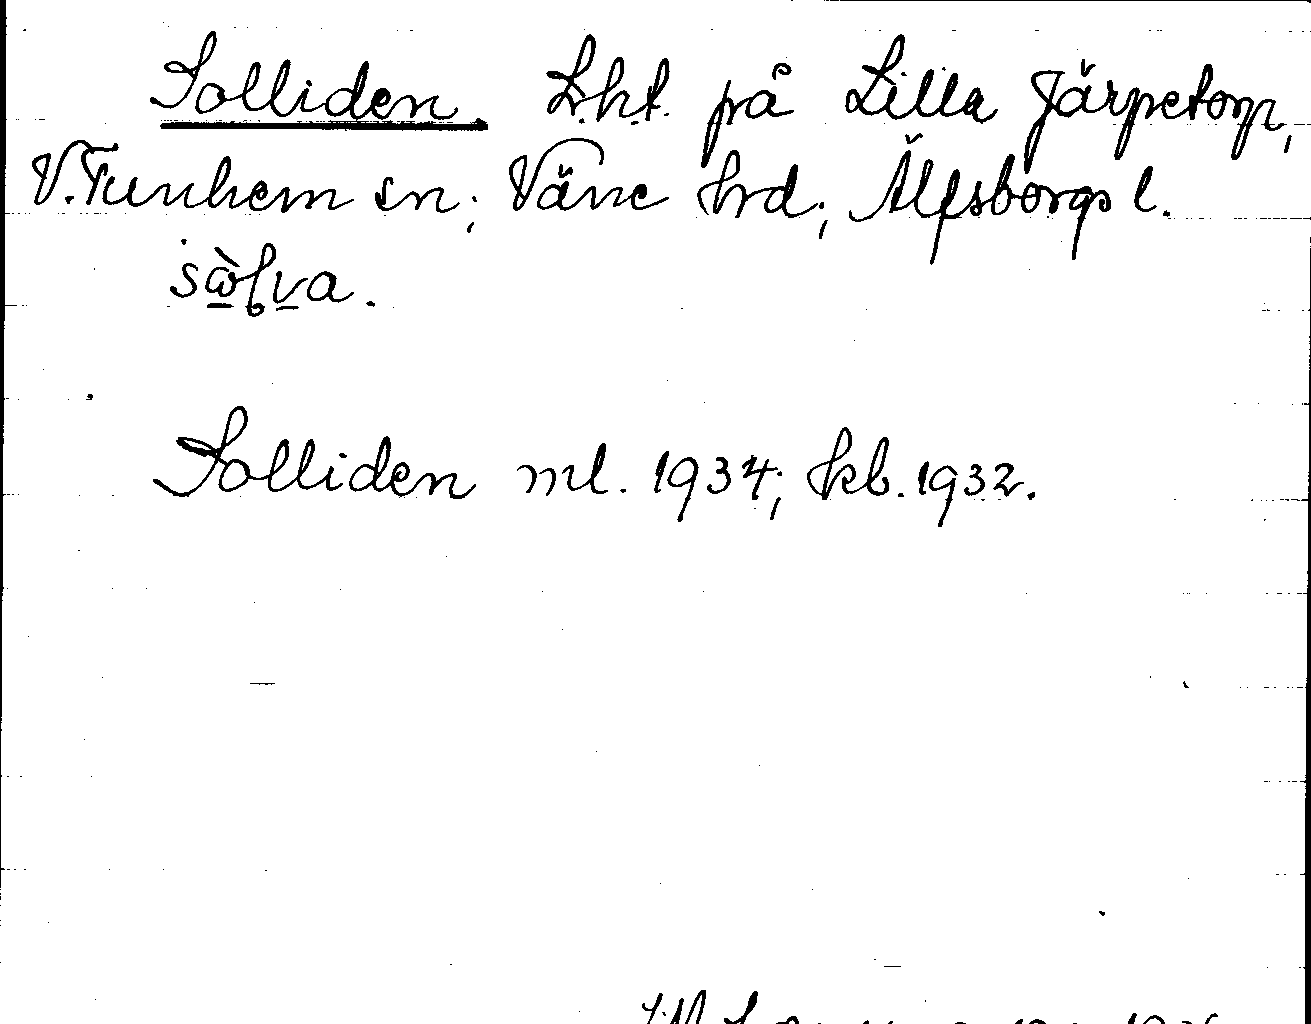 Solliden. L.h.t. på Lilla Järpetorp,
V. Tunhem sn; Väne hrd; Älfsborgs l.
Solliden ml. 1934; kb. 1932.